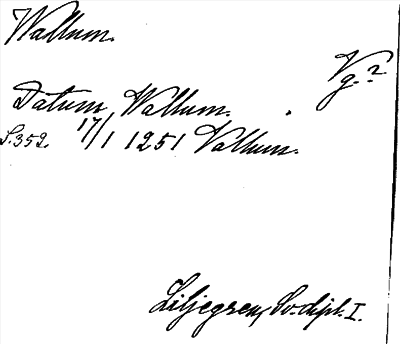 Wallum.
Vg. ?
Datum, Wallum.
S. 352. 17/1 1251 Vallum.
Liljegren, Sv. dipl. I.